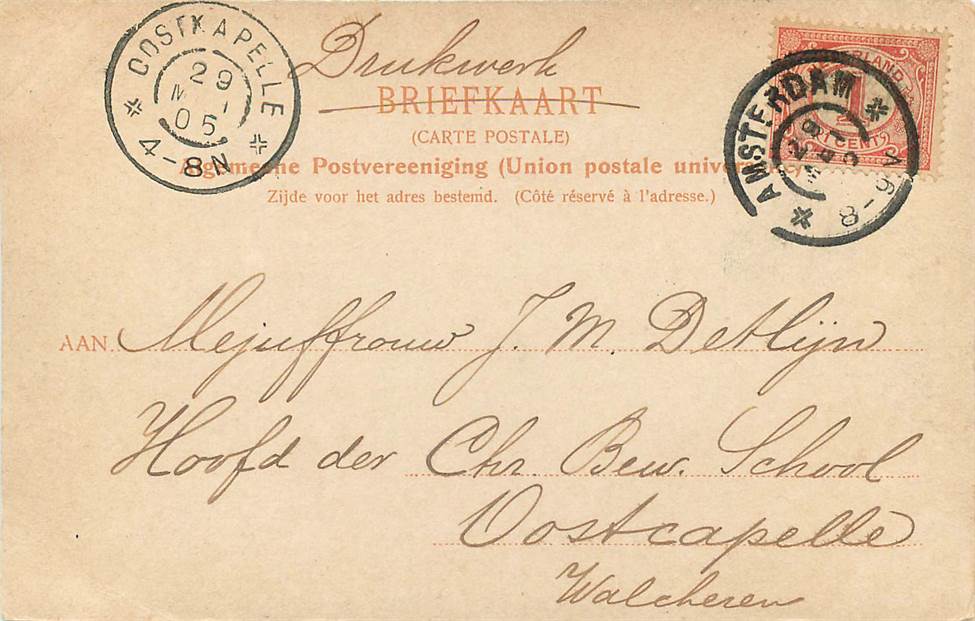 OOSTKAPELLE
29
05
4-8N
Drukwerk
BRIEFKAART
(CARTE POSTALE)
Algemeene Postvereeniging (Union postale universelle)
Zijde voor het adres bestemd. (Côté réservé à l'adresse.)
1
CENT
AMSTERDAM
AAN Mejuffrouw J. M. Detlijn
Hoofd der Chr. Bew. School
Oostcapelle
Walcheren